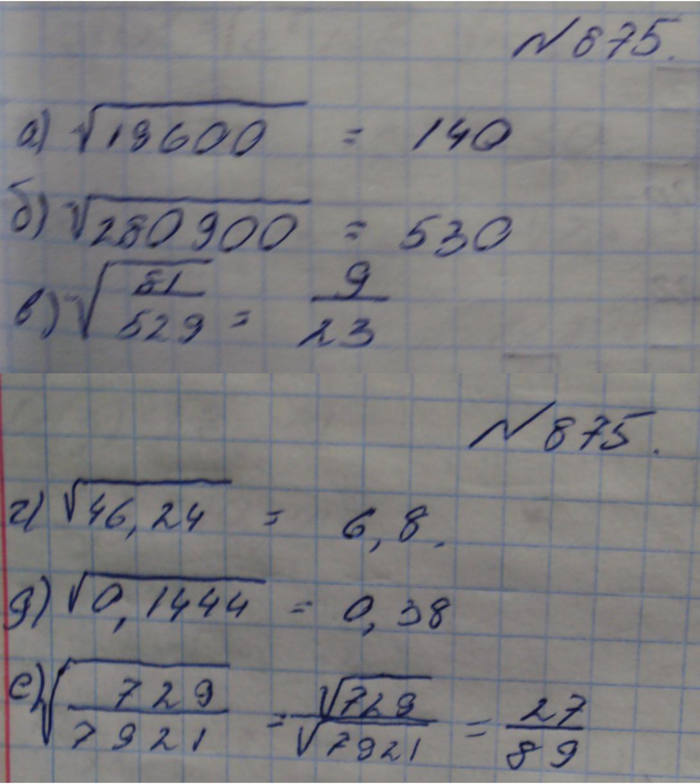 № 875.
а) √19600 = 140
б) √280900 = 530
в) √(81/529) = 9/23
№ 875.
г) √46,24 = 6,8.
д) √0,1444 = 0,38
е) √(729/7921) = √729/√7921 = 27/89